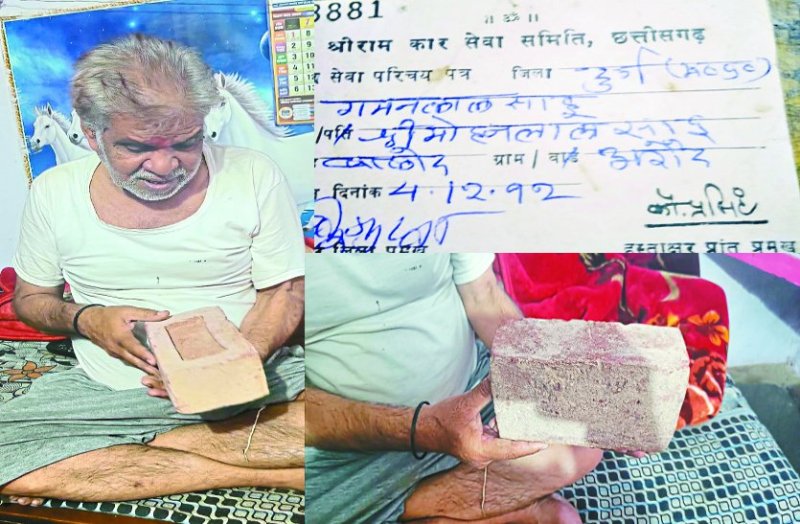 8881
॥ ॐ ॥
श्रीराम कार सेवा समिति, छत्तीसगढ़
सेवा परिचय पत्र जिला दुर्ग (म०प्र०)
गमनलाल साहू
श्री मोहनलाल साहू
ग्राम / वार्ड अरौद
दिनांक 4.12.92
जिला प्रमुख
हस्ताक्षर प्रांत प्रमुख